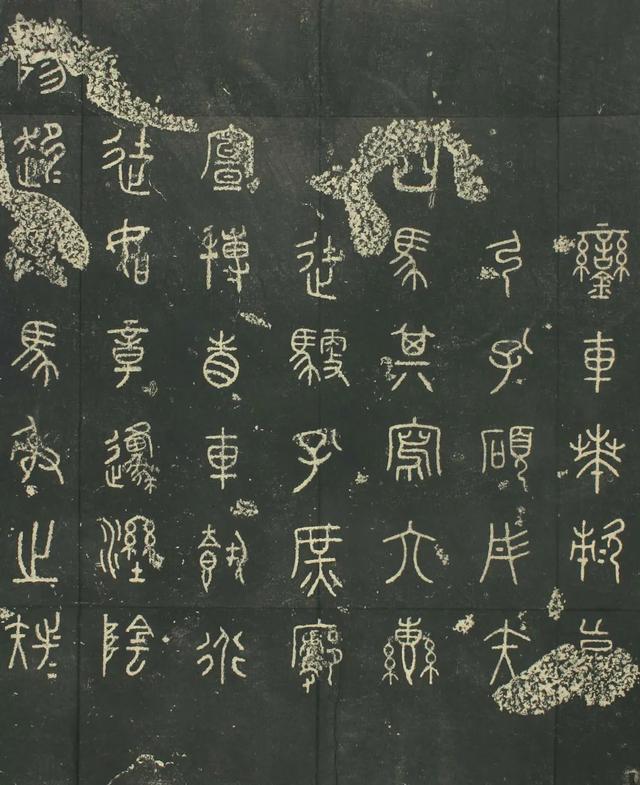 鑾車𠦪敕
弓孔碩彤矢
四馬其寫六轡
徒馭孔庶
宣搏眚車載行
徒如章邍溼陰
陽趍馬射之